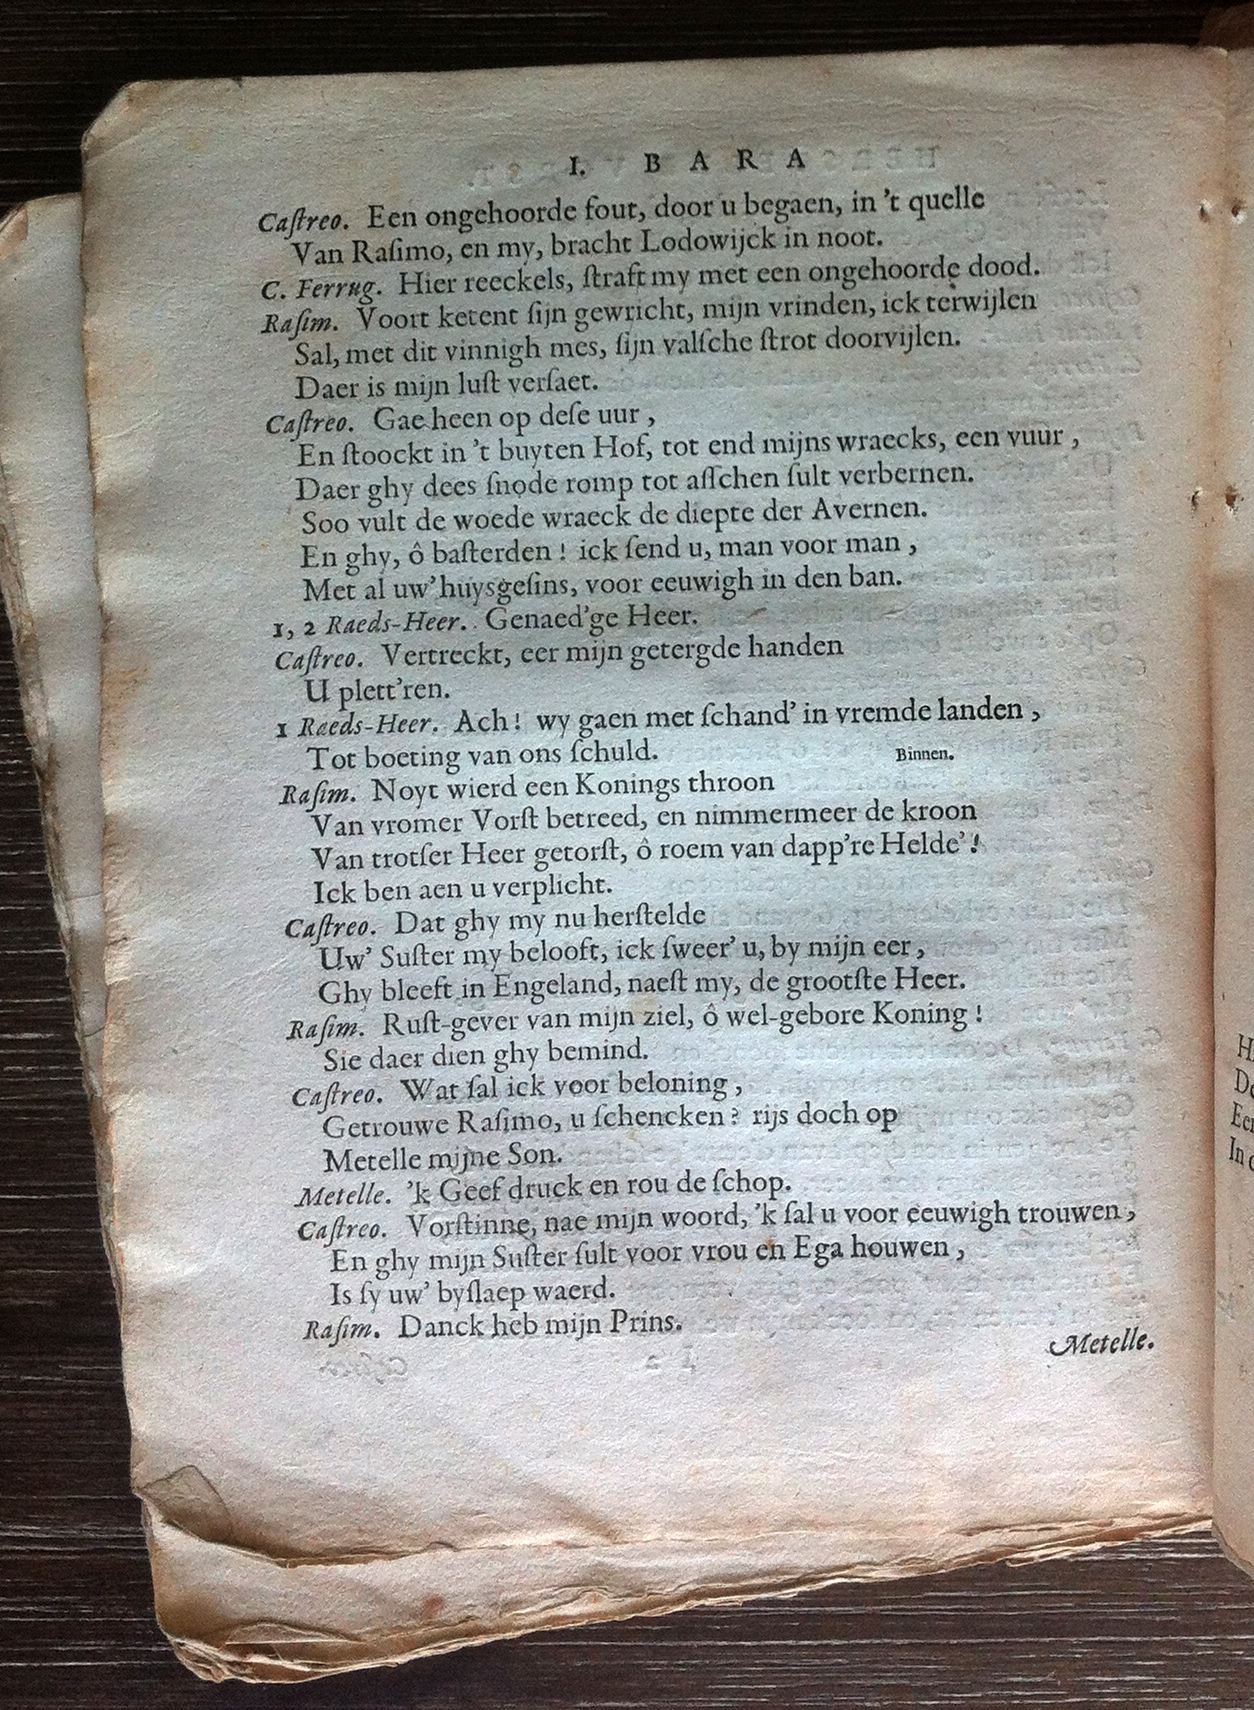 I. BARA
Caſtreo. Een ongehoorde fout, door u begaen, in 't quelle
Van Raſimo, en my, bracht Lodowijck in noot.
C. Ferrug. Hier reeckels, ſtraft my met een ongehoorde dood.
Raſim. Voort ketent ſijn gewricht, mijn vrinden, ick terwijlen
Sal, met dit vinnigh mes, ſijn valſche ſtrot doorvijlen.
Daer is mijn luſt verſaet.
Caſtreo. Gae heen op deſe uur,
En ſtoockt in 't buyten Hof, tot end mijns wraecks, een vuur,
Daer ghy dees ſnode romp tot aſſchen ſult verbernen.
Soo vult de woede wraeck de diepte der Avernen.
En ghy, ô baſterden! ick ſend u, man voor man,
Met al uw' huysgeſins, voor eeuwigh in den ban.
1, 2 Raeds-Heer. Genaed'ge Heer.
Caſtreo. Vertreckt, eer mijn getergde handen
U plett'ren.
1 Raeds-Heer. Ach! wy gaen met ſchand' in vremde landen,
Tot boeting van ons ſchuld. Binnen.
Raſim. Noyt wierd een Konings throon
Van vromer Vorſt betreed, en nimmermeer de kroon
Van trotſer Heer getorſt, ô roem van dapp're Helde'!
Ick ben aen u verplicht.
Caſtreo. Dat ghy my nu herſtelde
Uw' Suſter my belooft, ick ſweer' u, by mijn eer,
Ghy bleeft in Engeland, naeſt my, de grootſte Heer.
Raſim. Ruſt-gever van mijn ziel, ô wel-gebore Koning!
Sie daer dien ghy bemind.
Caſtreo. Wat ſal ick voor beloning,
Getrouwe Raſimo, u ſchencken? rijs doch op
Metelle mijne Son.
Metelle. 'k Geef druck en rou de ſchop.
Caſtreo. Vorſtinne, nae mijn woord, 'k ſal u voor eeuwigh trouwen,
En ghy mijn Suſter ſult voor vrou en Ega houwen,
Is ſy uw' byſlaep waerd.
Raſim. Danck heb mijn Prins.
Metelle.